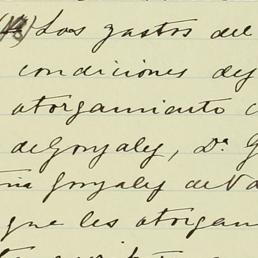 Los gastos del
condiciones de
otorgamiento
de Gonzalez, Da. G
Gonzalez de Va
que les otorgam